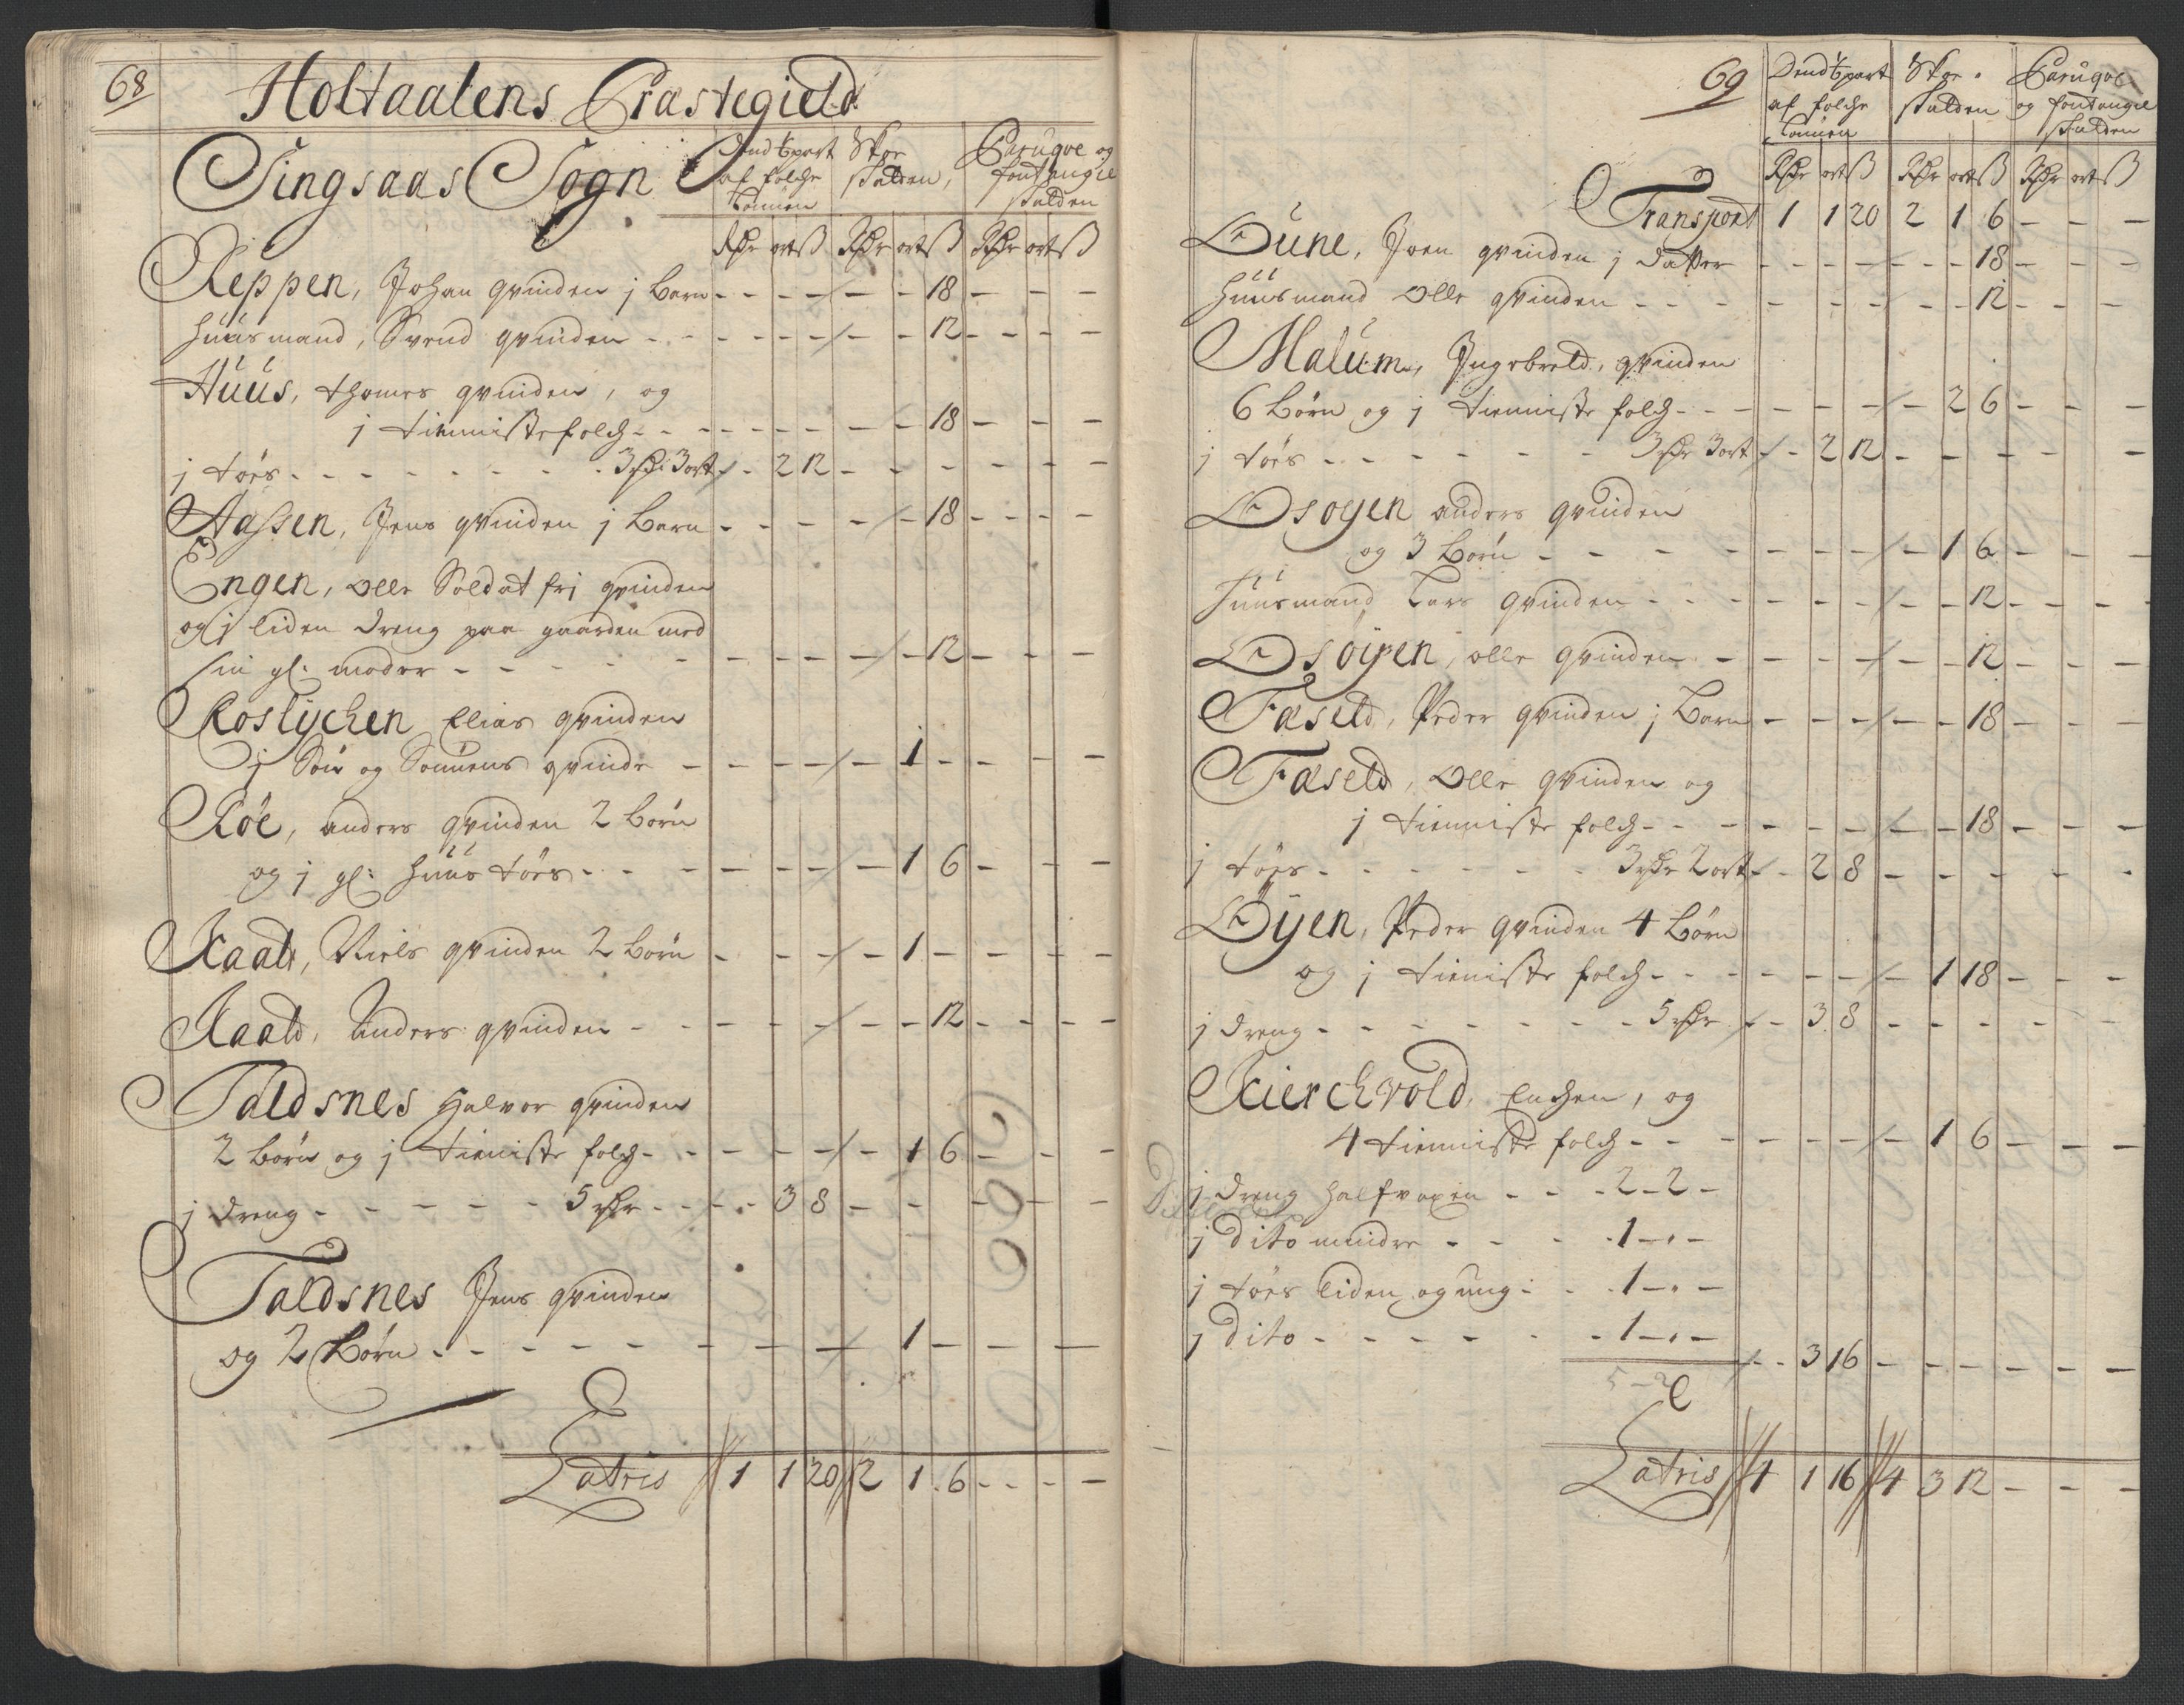 68
Holtaalens Præstegield
Singsaas Sogn
Dend 6 part af folche Lönnen
Skoe skatten,
Paruqve og fontangie skatten
Rdr ort ß Rdr ort ß Rdr ort ß
Reppen, Johan qvinden j barn - - - - - - 18 - - -
Huusmand, Svend qvinden - - - - - - - 12 - - - -
Huus, Thomes qvinden, og
j tiennistefolch - - - - - - - 18 - - -
j töes - - - - - - - 3 rdr 3 ort - 2 12 - - - - - -
Aassen, Jens qvinden j barn - - - - - 18 - - - -
Engen, Olle Soldat fri qvinden
og j liden dreng paa gaarden med
sin gl: moder - - - - - - - - - 12 - - -
Roslychen Elias qvinden
j Sön og Sönnens qvinde - - - - - 1 - - - -
Röe, anders qvinden 2 börn
og j gl: huus töes - - - - - - - 1 6 - - -
Kaald, Niels qvinden 2 börn - - - - 1 - - - -
Kaald, Anders qvinden - - - - - - - 12 - - - -
Taldsnes Halvor qvinden
2 börn og j tieniste folch - - - - - - 1 6 - - -
j dreng - - - - - 5 rdr - - - 3 8 - - - - -
Taldsnes Jens qvinden
og 2 Börn - - - - - - - - - 1 - - -
Latris 1 1 20 2 1 6 - - - -
69
Dend 6 part af folche Lönnen
Skoe skatten
Paruqve og fontangie skatten
Rdr ort ß Rdr ort ß Rdr ort ß
Transport 1 1 20 2 1 6 - - -
Dune, Joen qvinden j datter - - - - - - - 18 - - -
Huusmand Olle qvinden - - - - - - - - 12 - - -
Malum, Ingebreld, qvinden
6 Börn og j tienniste folch - - - - - - - 2 6 - - -
j töes - - - - - - 3 rdr 3 ort - 2 12 - - - - -
Osøyen anders qvinden
og 3 Börn - - - - - - - - 1 6 - - -
Huusmand Lars qvinden - - - - - - - - 12 - - - -
Osöyen, olle qvinden - - - - - - 12 - - -
Fæseld, Peder qvinden j Barn - - - - - 18 - - -
Fæseld, Olle qvinden og
j tienniste folch - - - - - - - - 18 - - -
j töes - - - - - - 3 rdr 2 ort - 2 8 - - - - -
Öyen, Peder qvinden 4 Börn
og j tieniste folch - - - - - - - 1 18 - - -
j dreng - - - - - - - 5 rdr - 3 8 - - - - -
Kierchvold, Enchen, og
4 tienniste folch - - - - - - - 1 6 - - -
j dreng halfvoxen - - - 2 - 2 -
j dito mindre - - - 1 - " -
j töes liden og ung - - 1 - " -
j dito - - - - - - 1 - " -
- - 3 16 - - - - - -
5 - 2
Latris 4 1 16 4 3 12 - - -